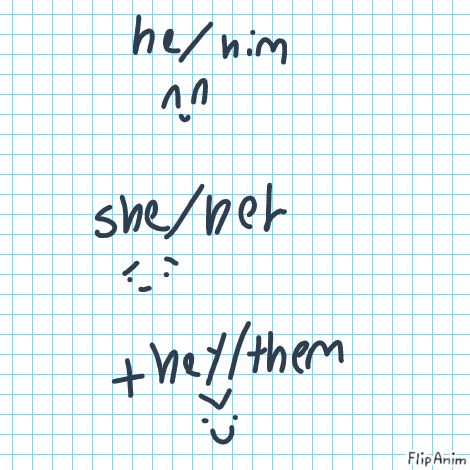 he/him
she/her
they/them
FlipAnim